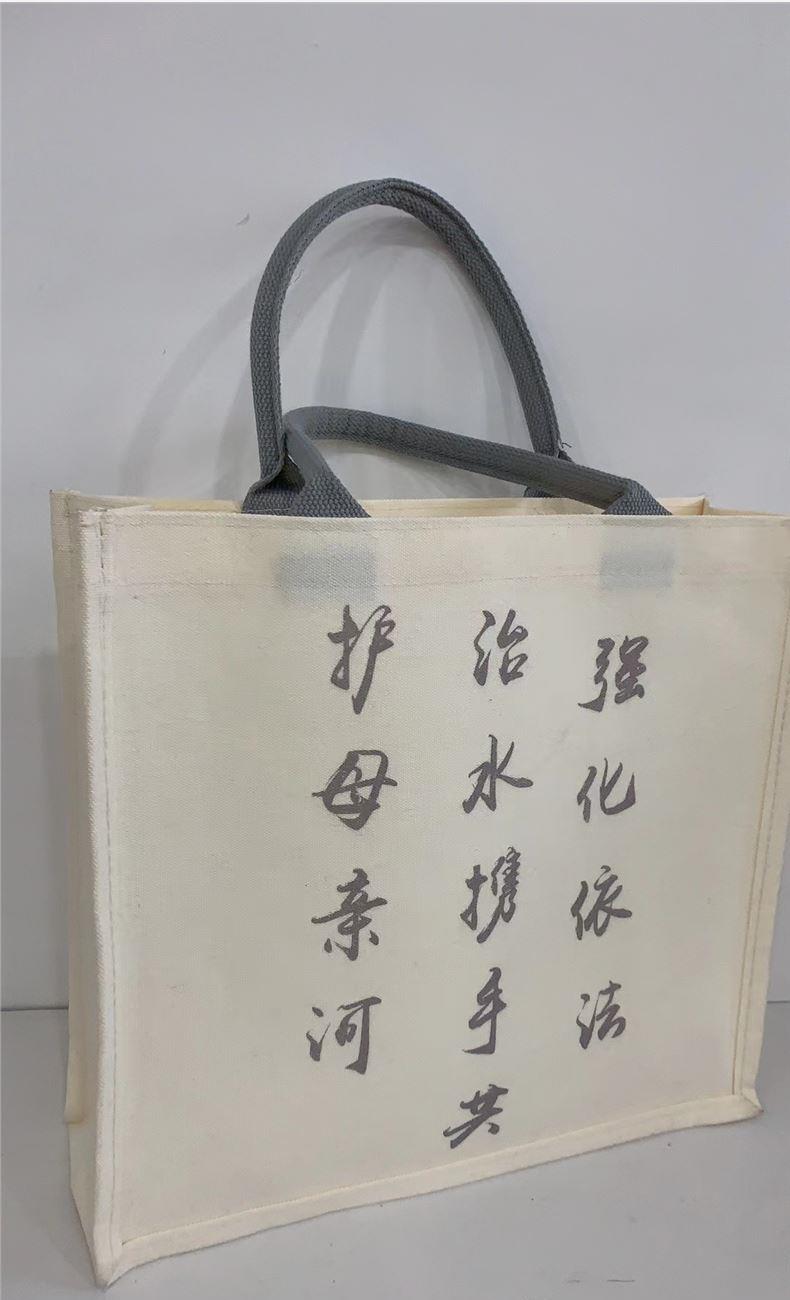 强化依法
治水携手共
护母亲河